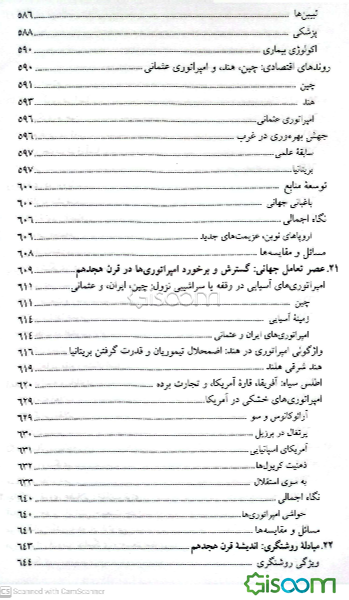 تبیین‌ها ۵۸۶
پزشکی ۵۸۸
اکولوژی بیماری ۵۹۰
روندهای اقتصادی: چین، هند، و امپراتوری عثمانی ۵۹۰
چین ۵۹۱
هند ۵۹۳
امپراتوری عثمانی ۵۹۶
جهش بهره‌وری در غرب ۵۹۶
سابقهٔ علمی ۵۹۷
بریتانیا ۵۹۷
توسعهٔ منابع ۶۰۰
باغبانی جهانی ۶۰۰
نگاه اجمالی ۶۰۶
اروپاهای نوین، عزیمت‌های جدید ۶۰۶
مسائل و مقایسه‌ها ۶۰۸
۲۱. عصر تعامل جهانی: گسترش و برخورد امپراتوری‌ها در قرن هجدهم ۶۰۹
امپراتوری‌های آسیایی در وقفه یا سراشیبی نزول: چین، ایران، و عثمانی ۶۱۱
چین ۶۱۱
زمینهٔ آسیایی ۶۱۴
امپراتوری‌های ایران و عثمانی ۶۱۴
واژگونی امپراتوری در هند: اضمحلال تیموریان و قدرت گرفتن بریتانیا ۶۱۶
هند شرقی هلند ۶۱۹
اطلس سیاه: آفریقا، قارهٔ آمریکا، و تجارت برده ۶۲۰
امپراتوری‌های خشکی در آمریکا ۶۲۹
آرائوکانوس و سو ۶۲۹
پرتغال در برزیل ۶۳۰
آمریکای اسپانیایی ۶۳۱
ذهنیت کریول‌ها ۶۳۲
به سوی استقلال ۶۳۳
نگاه اجمالی ۶۴۰
حواشی امپراتوری‌ها ۶۴۰
مسائل و مقایسه‌ها ۶۴۱
۲۲. مبادلهٔ روشنگری: اندیشهٔ قرن هجدهم ۶۴۳
ویژگی روشنگری ۶۴۴
GISOOM
CS Scanned with CamScanner
Gisoom